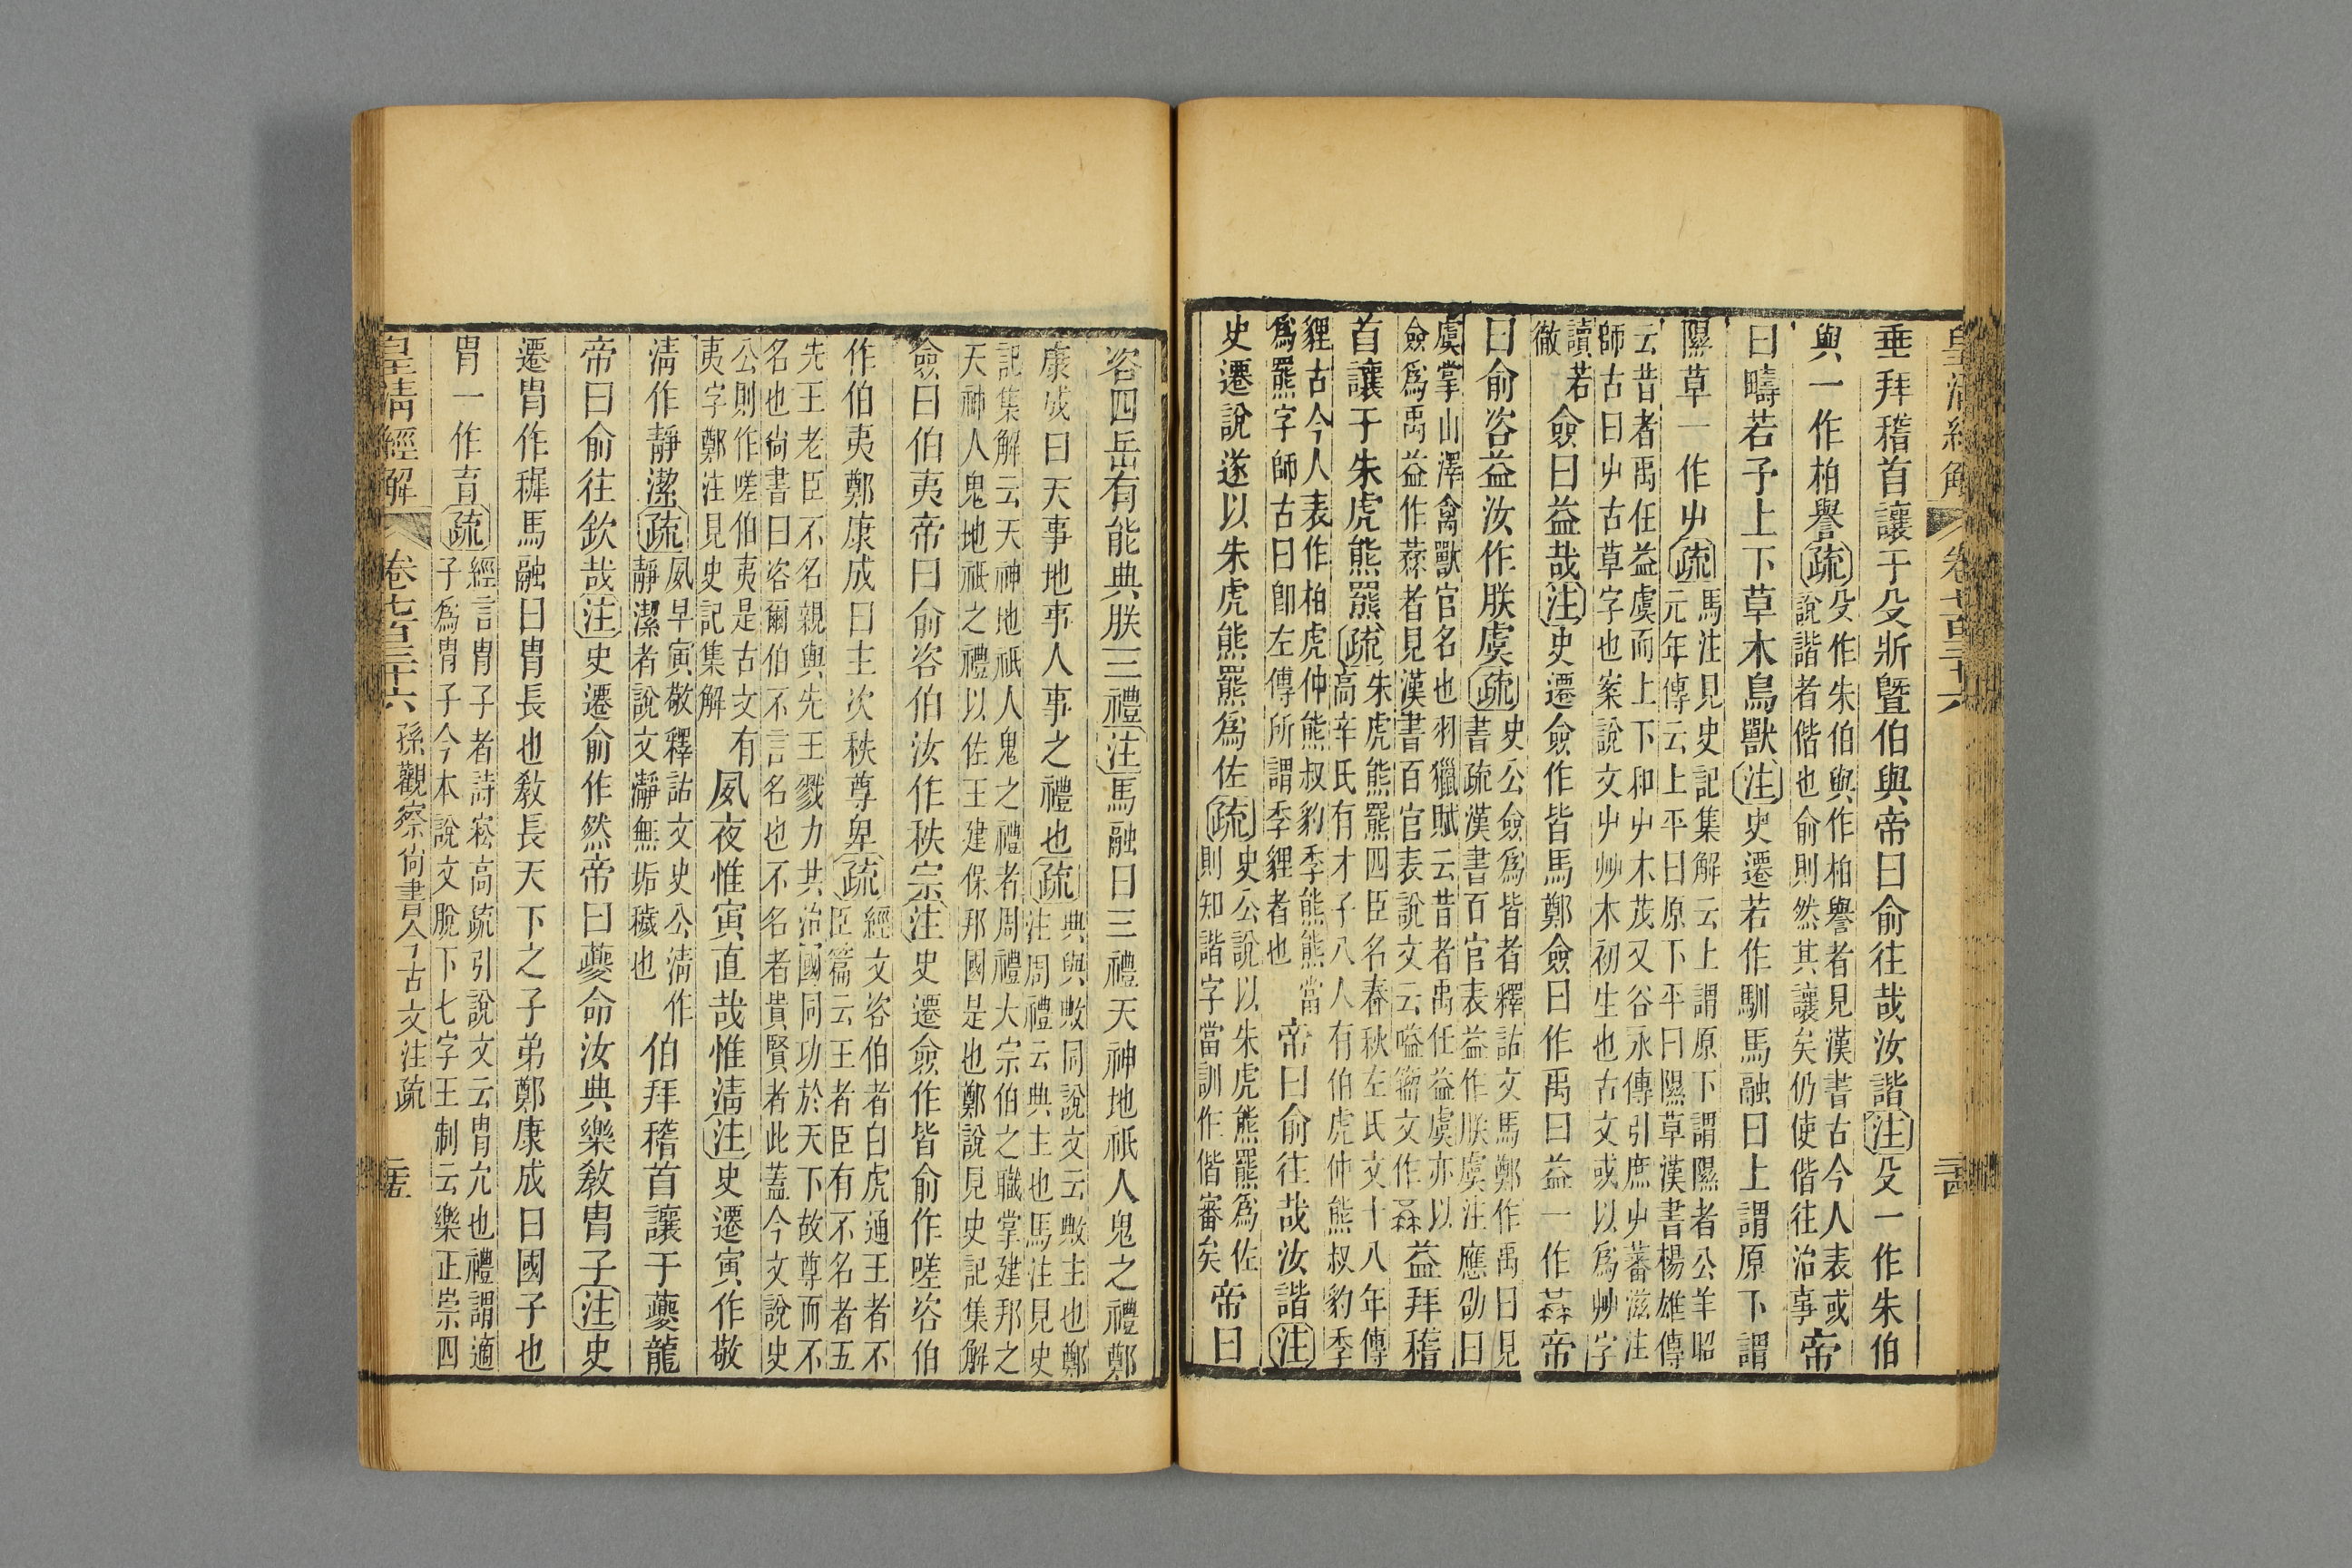 皇清經解
卷七百三十六
垂拜稽首讓于殳斨曁伯與帝曰俞往哉汝諧注殳一作朱伯
與一作柏譽疏殳作朱伯與作柏譽者見漢書古今人表或
說諧者偕也俞則然其讓矣仍使偕往治事帝
曰疇若予上下草木鳥獸注史遷若作馴馬融曰上謂原下謂
隰草一作屮疏馬注見史記集解云上謂原下謂隰者公羊昭
元年傳云上平曰原下平曰隰草漢書楊雄傳
云昔者禹任益虞而上下和屮木茂又谷永傳引庶屮蕃滋注
師古曰屮古草字也案說文屮艸木初生也古文或以爲艸字
讀若
徹
僉曰益哉注史遷僉作皆馬鄭僉曰作禹曰益一作𦳣帝
曰俞咨益汝作朕虞疏史公僉爲皆者釋詁文馬鄭作禹曰見
書疏漢書百官表益作朕虞注應劭曰
虞掌山澤禽獸官名也羽獵賦云昔者禹任益虞亦以
僉爲禹益作𦳣者見漢書百官表說文云嗌籀文作𦳣益拜稽
首讓于朱虎熊羆疏朱虎熊羆四臣名春秋左氏文十八年傳
高辛氏有才子八人有伯虎仲熊叔豹季
貍古今人表作柏虎仲熊叔豹季熊熊當
爲羆字師古曰卽左傳所謂季貍者也
帝曰俞往哉汝諧注
史遷說遂以朱虎熊羆爲佐疏史公說以朱虎熊羆爲佐
則知諧字當訓作偕審矣帝曰
咨四岳有能典朕三禮注馬融曰三禮天神地祇人鬼之禮鄭
康成曰天事地事人事之禮也疏典與敟同說文云敟主也鄭
注周禮云典主也馬注見史
記集解云天神地祇人鬼之禮者周禮大宗伯之職掌建邦之
天神人鬼地祇之禮以佐王建保邦國是也鄭說見史記集解
僉曰伯夷帝曰俞咨伯汝作秩宗注史遷僉作皆俞作嗟咨伯
作伯夷鄭康成曰主次秩尊卑疏經文咨伯者白虎通王者不
臣篇云王者臣有不名者五
先王老臣不名親與先王戮力共治國同功於天下故尊而不
名也尙書曰咨爾伯不言名也不名者貴賢者此蓋今文說史
公則作嗟伯夷是古文有
夷字鄭注見史記集解
夙夜惟寅直哉惟淸注史遷寅作敬
淸作靜潔疏夙早寅敬釋詁文史公淸作
靜潔者說文瀞無垢薉也
伯拜稽首讓于夔龍
帝曰俞往欽哉注史遷俞作然帝曰夔命汝典樂敎胄子注史
遷胄作稺馬融曰胄長也敎長天下之子弟鄭康成曰國子也
胄一作育疏經言胄子者詩崧高疏引說文云胄允也禮謂適
子爲胄子今本說文脫下七字王制云樂正崇四
皇清經解
卷七百三十六
孫觀察尙書今古文注疏